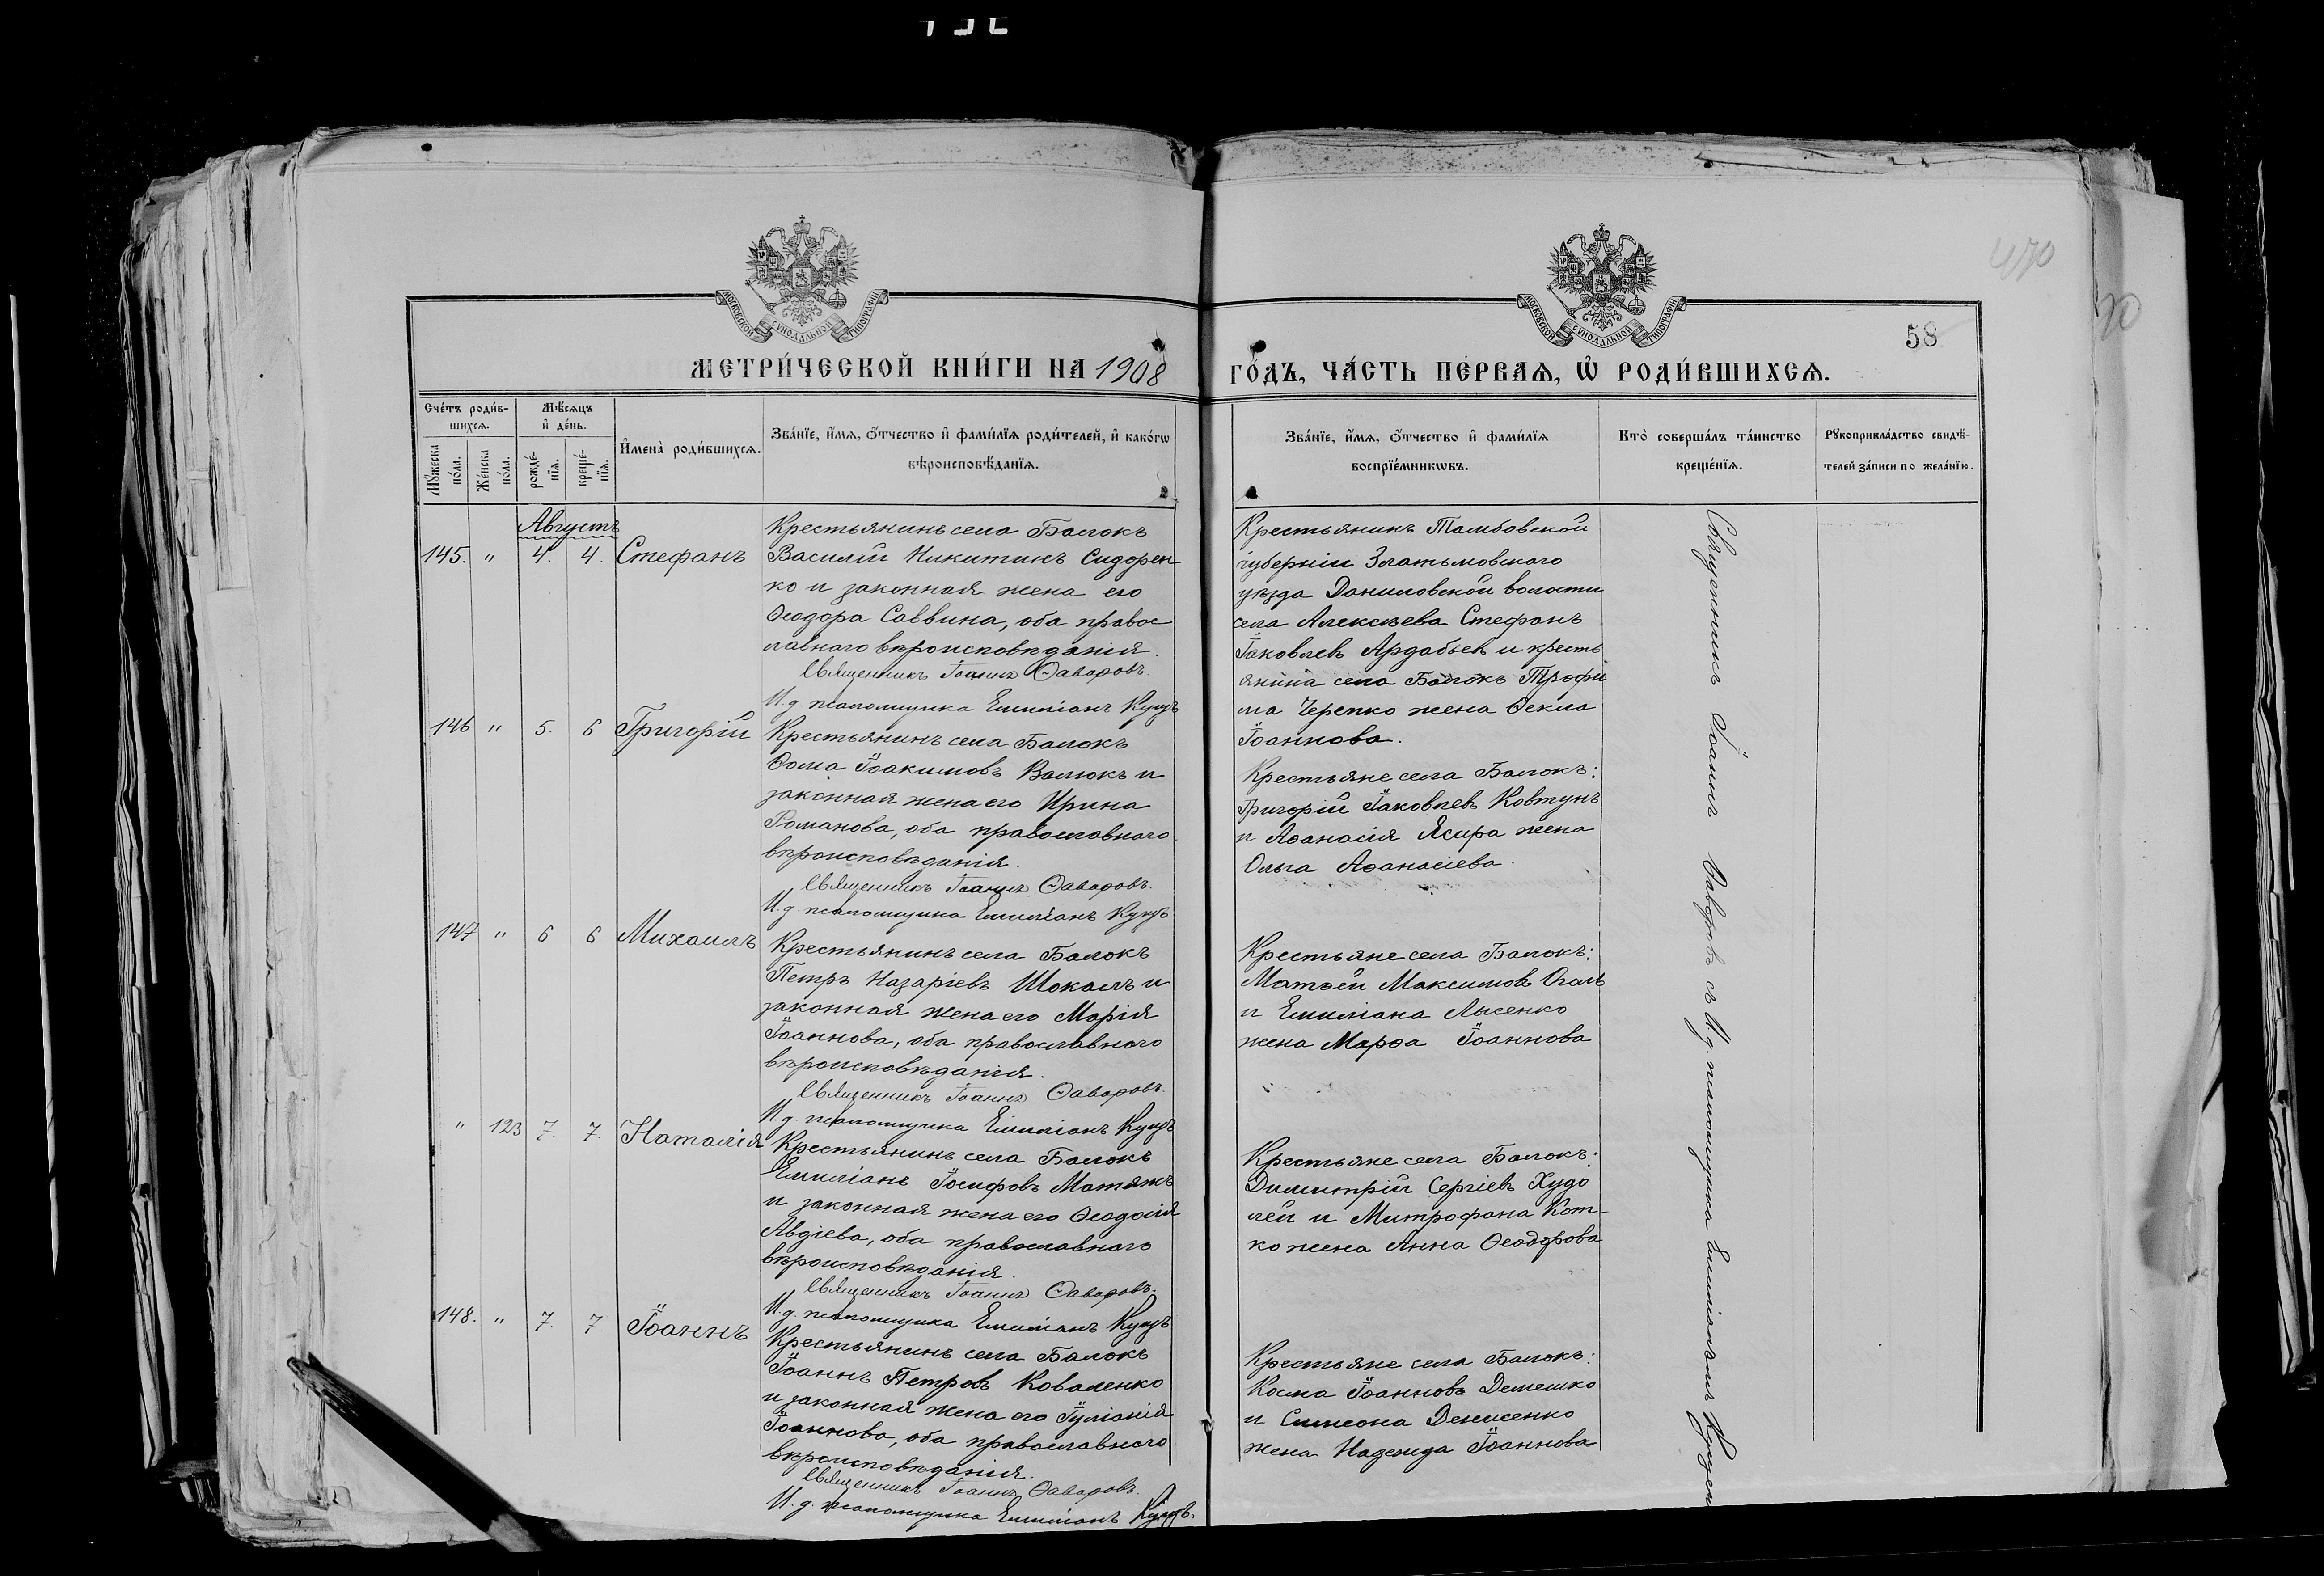 470
58
МОСКОВСКОЙ СѴНОДАЛЬНОЙ ТИПОГРАФІИ
МОСКОВСКОЙ СѴНОДАЛЬНОЙ ТИПОГРАФІИ
МЕТРИ́ЧЕСКОЙ КНИ́ГИ НА 1908 ГО́ДЪ, ЧА́СТЬ ПЕ́РВАѦ, Ѡ҆ РОДИ́ВШИХСѦ.
Сче́тъ роди́в-
шихсѧ.
Мꙋ́жеска по́ла.
Же́нска по́ла.
Мѣ́сѧцъ
и҆ де́нь.
рожде́-
нїѧ.
креще́-
нїѧ.
И҆мена̀ роди́вшихсѧ.
Зва́нїе, и҆́мѧ, ѻ҆́тчество и҆ фами́лїѧ роди́телей, и҆ како́гѡ
вѣроисповѣ́данїѧ.
Зва́нїе, и҆́мѧ, ѻ҆́тчество и҆ фами́лїѧ
воспрїе́мникѡвъ.
Кто̀ соверша́лъ та́инство
креще́нїѧ.
Рꙋкоприкла́дство свидѣ́-
телей за́писи по жела́нїю.
Августъ
145. " 4. 4. Стефанъ
Крестьянинъ села Балокъ
Василій Никитинъ Сидорен
ко и законная жена его
Ѳеодора Саввина, оба правос
лавного вѣроисповѣданія.
Священникъ Іоаннъ Ѳаворовъ.
И.д. псаломщика Емиліанъ Куцъ
Крестьянинъ Тамбовской
губерніи
уѣзда Даниловской волости
села Алексѣева Стефанъ
Іаковлевъ Ардабьев и кресть
янина села Балокъ Трофи
ма Черепко жена Ѳекла
Іоаннова.
146 " 5. 6 Григорій
Крестьянинъ села Балокъ
Ѳома Іоакимовъ Валюкъ и
законная жена его Ирина
Романова, оба православного
вѣроисповѣданія.
Священникъ Іоаннъ Ѳаворовъ.
И.д. псаломщика Емиліанъ Куцъ
Крестьяне села Балокъ:
Григорій Іаковлевъ Ковтунъ
и Аѳанасія Ясира жена
Ольга Аѳанасіева.
147 " 6 6 Михаилъ
Крестьянинъ села Балокъ
Петръ Назаріевъ Шокалъ и
законная жена его Марія
Іоаннова, оба православного
вѣроисповѣданія.
Священникъ Іоаннъ Ѳаворовъ.
И.д. псаломщика Емиліанъ Куцъ
Крестьяне села Балокъ:
Матѳей Максимовъ
и Емиліана Лысенко
жена Марѳа Іоаннова
" 123 7. 7. Наталія
Крестьянинъ села Балокъ
Емиліанъ Іосифовъ Матяжъ
и законная жена его Ѳеодосія
Авдіева, оба православного
вѣроисповѣданія.
Священникъ Іоаннъ Ѳаворовъ.
И.д. псаломщика Емиліанъ Куцъ
Крестьяне села Балокъ:
Димитрій Сергіевъ Худо
лей и Митрофана Кот-
ко жена Анна Ѳеодорова
148. " 7. 7. Іоаннъ
Крестьянинъ села Балокъ
Іоаннъ Петровъ Коваленко
и законная жена его Іуліанія
Іоаннова, оба православного
вѣроисповѣданія.
Священникъ Іоаннъ Ѳаворовъ.
И.д. псаломщика Емиліанъ Куцъ.
Крестьяне села Балокъ:
Косма Іоанновъ Демешко
и Симеона Денисенко
жена Надежда Іоаннова
Священникъ Іоаннъ Ѳаворовъ съ И.д. псаломщика Емиліаномъ